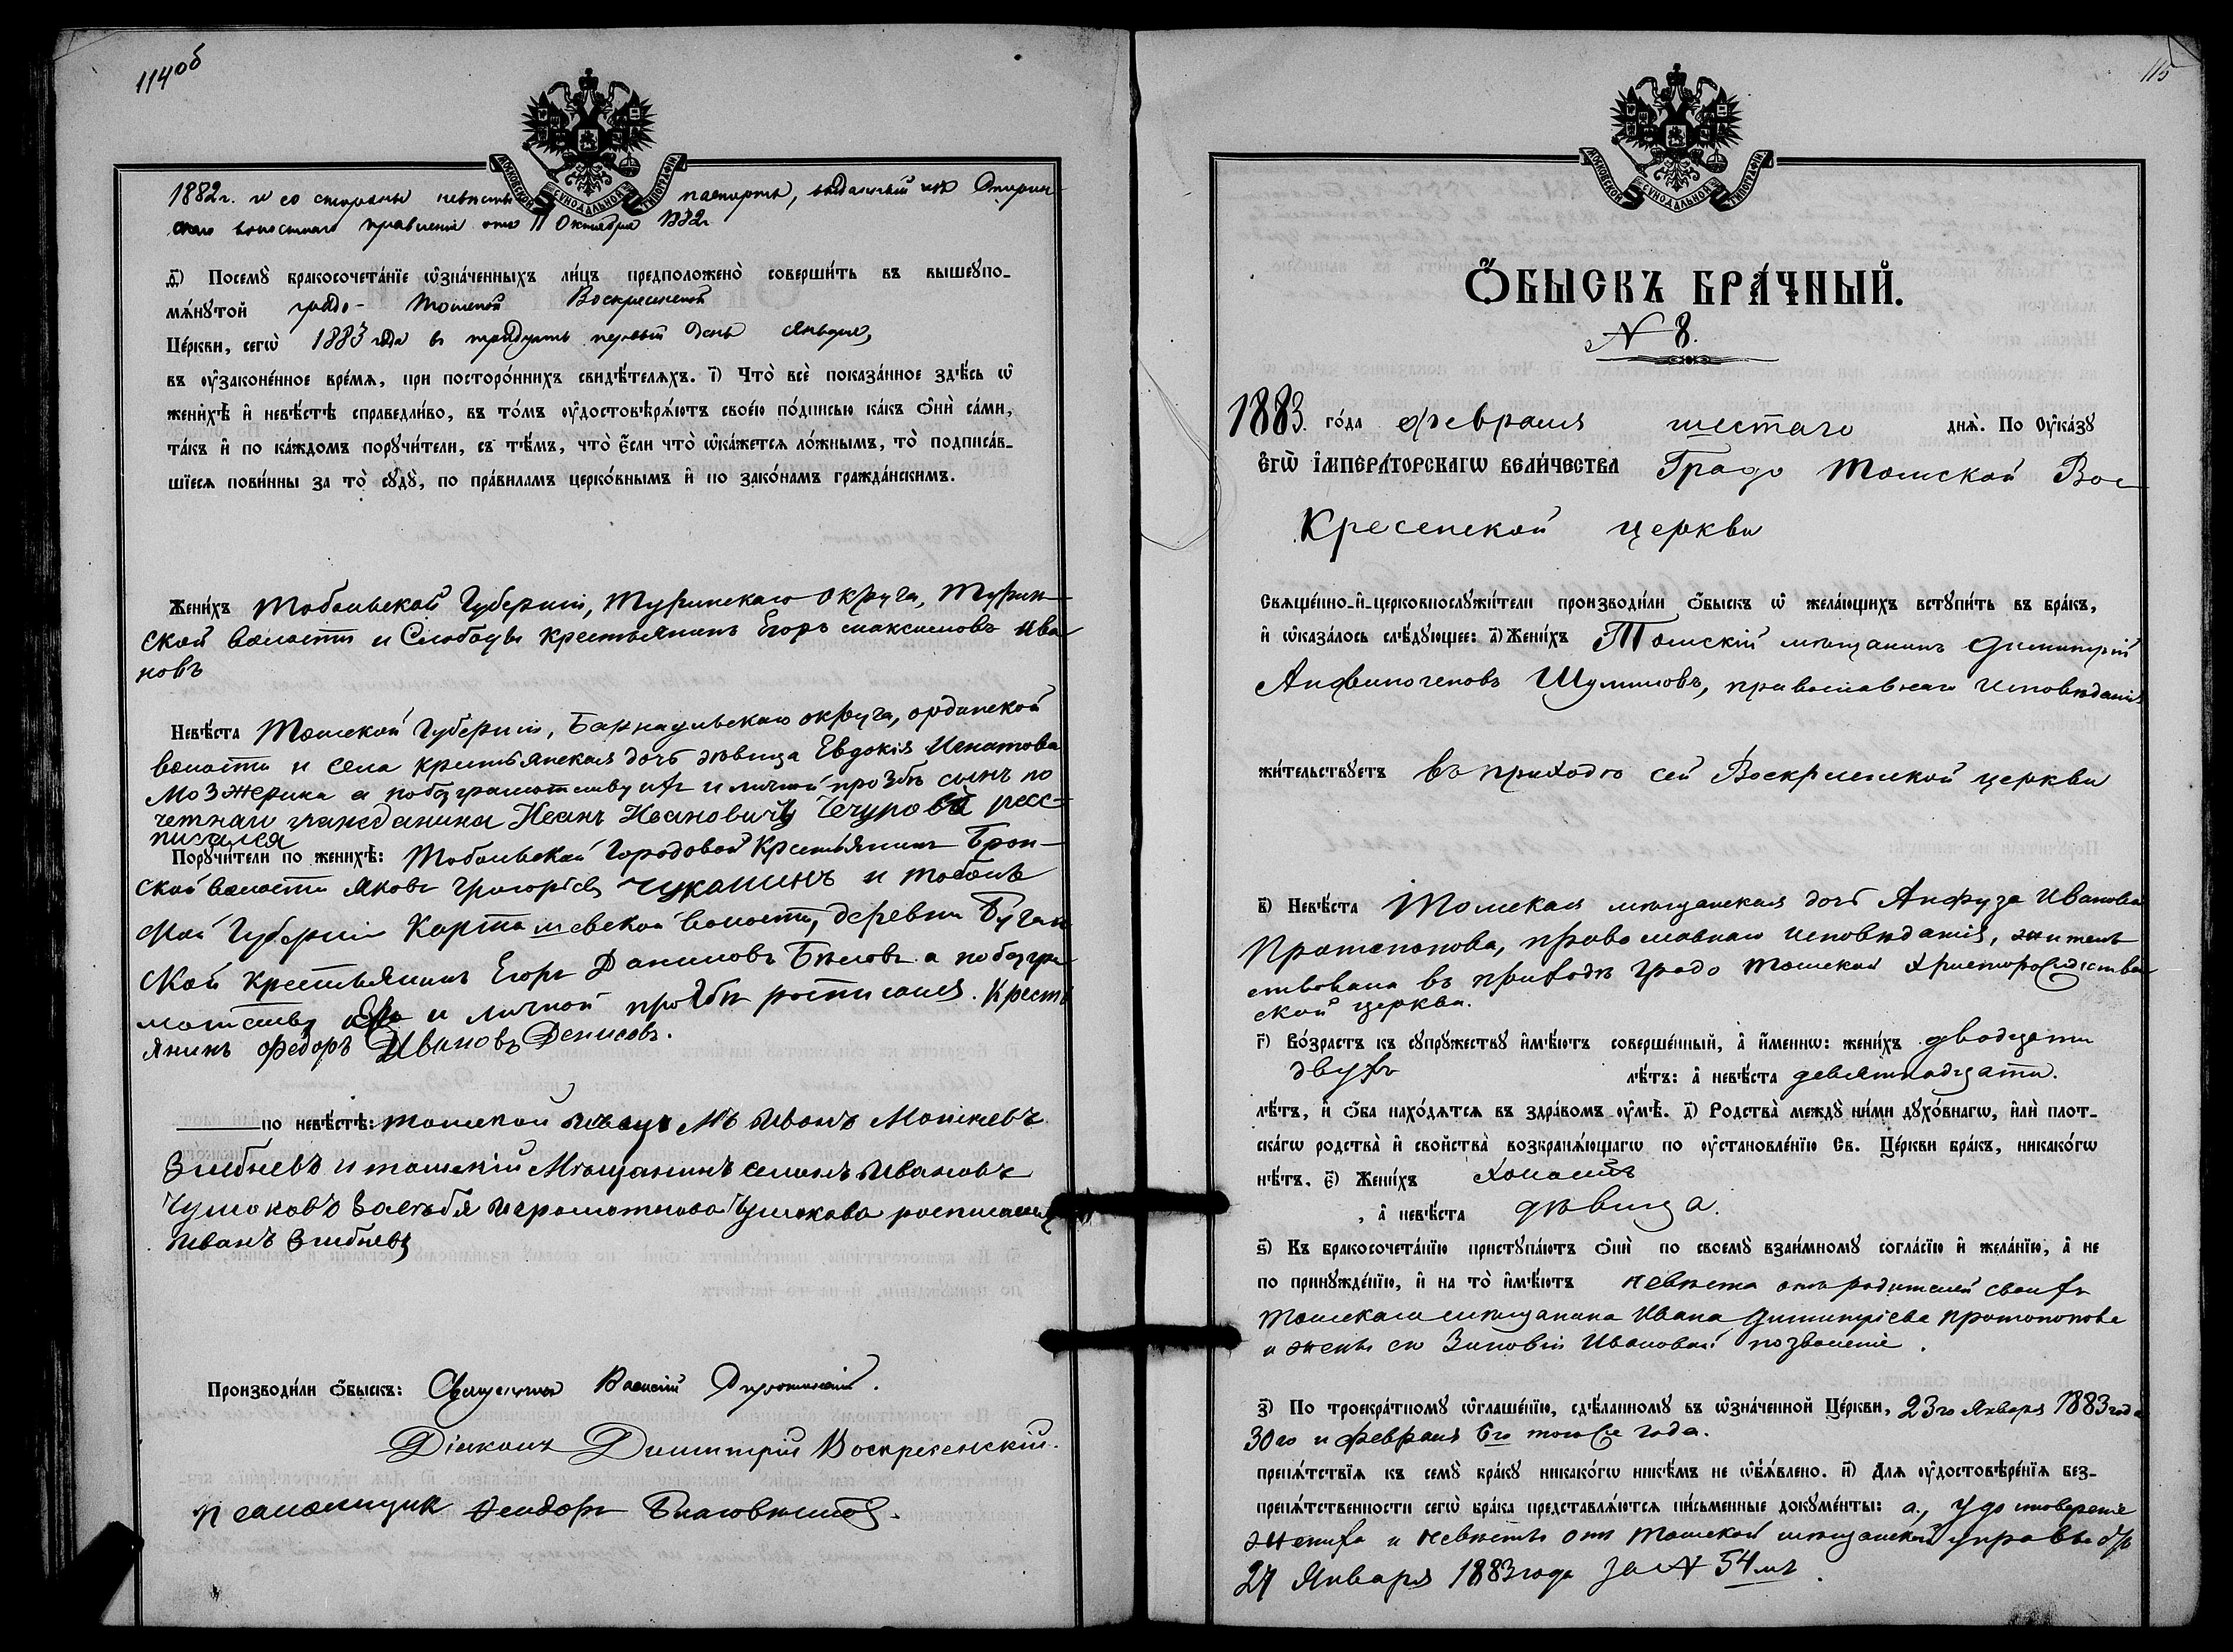 114об
МОСКОВСКОЙ СѴНОДАЛЬНОЙ ТИПОГРАФІИ
1882 г. и со стороны невѣсты паспортъ, выданный изъ
скаго волостнаго правленія отъ 11 Октября 1882 г
д҃) Посемꙋ̀ бракосочета́нїе ѡ҆зна́ченныхъ ли́цъ предположено̀ соверши́ть въ вышеꙋпо-
мѧ́нꙋтой градо-Томской Воскресенской
Це́ркви, сегѡ̀ 1883 года въ тридцать первый день Января,
въ ᲂу҆законе́нное вре́мѧ, при посторо́ннихъ свидѣ́телѧхъ. і҃) Что̀ всѐ показа́нное здѣ́сь ѡ҆
женихѣ̀ и҆ невѣ́стѣ справедли́во, въ то́мъ ᲂу҆достовѣрѧ́ютъ свое́ю по́дписью ка́къ ѻ҆нѝ са́ми,
та́къ и҆ по ка́ждомъ порꙋчи́тели, съ тѣ́мъ, что̀ є҆́сли что̀ ѡ҆ка́жетсѧ ло́жнымъ, то̀ подписа́в-
шїесѧ пови́нны за то̀ сꙋдꙋ̀, по пра́виламъ церко́внымъ и҆ по зако́намъ гражда́нскимъ.
Жени́хъ Тобольской Губерніи, Туринскаго округа, Турин-
ской волости и Слободы крестьянинъ Егоръ Максимовъ Ива
новъ
Невѣ́ста Томской Губерніи, Барнаульскаго округа, ординской
волости и села крестьянская дочь дѣвица Евдокія Игнатова
а по безграмотству ихъ и личной прозбѣ сынъ по
четнаго гражданина Иванъ Ивановичъ Чечуровъ росс-
писался
Порꙋчи́тели по женихѣ̀: Тобольской Городовой Крестьянинъ Брон-
ской волости Яковъ Григорьевъ Чукоминъ и Тоболь
ской Губерніи волости, деревни
ской крестьянинъ Егоръ Даниловъ Бѣловъ а по безгра
мотству его и личной прозбѣ росписался. Кресть
янинъ Федоръ Ивановъ Денисовъ.
по невѣ́стѣ: томской Иванъ
и томскій Мѣщанинъ Ивановъ
Чумаковъ неграмотнова Чумакова росписался
Иванъ
Производи́ли ѻ҆́быскъ: Священникъ Василій
Діаконъ Димитрій Воскресенскій.
Псаломщикъ Ѳеодоръ
115
МОСКОВСКОЙ СѴНОДАЛЬНОЙ ТИПОГРАФІИ
Ѻ҆́БЫСКЪ БРА́ЧНЫЙ.
N 8.
1883. го́да Февраля шестаго днѧ̀. По Оу҆ка́зꙋ
Е҆гѡ̀ І҆мпера́торскагѡ вели́чества Градо Томской Вос
кресенской церкви
Свѧще́нно-и҆-церковнослꙋжи́тели производи́ли ѻ҆́быскъ ѡ҆ жела́ющихъ встꙋпи́ть въ бра́къ,
и҆ ѡ҆каза́лось слѣ́дꙋющее: а҃) Жени́хъ Томскій мѣщанинъ Димитрій
Анфиногеновъ Шумиловъ, православнаго исповѣданія
жи́тельствꙋетъ въ приходѣ сей Воскресенской церкви
в҃) Невѣ́ста Томская мѣщанская дочь Анфуза Иванова
Протопопова, православнаго исповѣданія, житель
ствовала въ приходѣ градо Томской Христорождествен
ской церкви.
г҃) Во́зрастъ къ сꙋпрꙋ́жествꙋ и҆мѣ́ютъ соверше́нный, а҆̀ и҆́меннѡ: жени́хъ двадцати
двухъ лѣ́тъ: а҆̀ невѣ́ста девятнадцати.
лѣ́тъ, и҆ ѻ҆́ба нахо́дѧтсѧ въ здра́вомъ ᲂу҆мѣ̀. д҃) Родства̀ междꙋ̀ ни́ми дꙋхо́внагѡ, и҆лѝ плот-
ска́гѡ родства̀ и҆ свойства̀ возбранѧ́ющагѡ по ᲂу҆становле́нїю Св. Це́ркви бра́къ, никако́гѡ
нѣ́тъ. є҃) Жени́хъ холостъ
, а҆̀ невѣ́ста дѣвица.
ѕ҃) Къ бракосочета́нїю пристꙋпа́ютъ ѻ҆нѝ по своемꙋ̀ взаи́мномꙋ согла́сїю и҆ жела́нїю, а҆̀ не
по принꙋжде́нїю, и҆ на то̀ и҆мѣ́ютъ невѣста отъ родителей своихъ
томскаго мѣщанина Ивана Димитріева Протопопова
и жены его Зиновіи Ивановой позволеніе.
з҃) По троекра́тномꙋ ѡ҆глаше́нїю, сдѣ́ланномꙋ въ ѡ҆зна́ченной Це́ркви, 23го Января 1883 года
30го и Февраля 6го того же года.
препѧ́тствїѧ къ семꙋ̀ бра́кꙋ никако́гѡ никѣ́мъ не ѡ҆б̾ѧ́влено. и҃) Длѧ ᲂу҆достовѣре́нїѧ без-
препѧ́тственности сегѡ̀ бра́ка представлѧ́ютсѧ пи́сьменные докꙋме́нты: а., удостоверение
жениха и невѣсты отъ Томской мѣщанской управы отъ
27 Января 1883 года за N 54мъ.